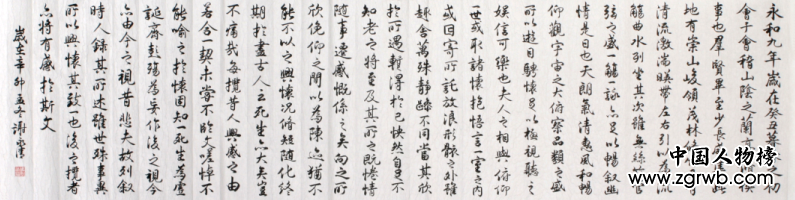 永和九年歲在癸丑暮春之初
會于會稽山陰之蘭亭脩禊
事也群賢畢至少長咸集此
地有崇山峻領茂林脩竹又有
清流激湍暎帶左右引以為流
觴曲水列坐其次雖無絲竹管
弦之盛一觴一詠亦足以暢敘幽
情是日也天朗氣清惠風和暢
仰觀宇宙之大俯察品類之盛
所以遊目騁懷足以極視聽之
娛信可樂也夫人之相與俯仰
一世或取諸懷抱悟言一室之內
或因寄所託放浪形骸之外雖
趣舍萬殊靜躁不同當其欣
於所遇暫得於己快然自足不
知老之將至及其所之既惓情
隨事遷感慨係之矣向之所
欣俛仰之間以為陳迹猶不
能不以之興懷況脩短隨化終
期於盡古人云死生亦大矣豈
不痛哉每攬昔人興感之由
若合一契未嘗不臨文嗟悼不
能喻之於懷固知一死生為虛
誕齊彭殤為妄作後之視今
亦由今之視昔悲夫故列敘
時人錄其所述雖世殊事異
所以興懷其致一也後之攬者
亦將有感於斯文
歲在辛卯孟冬謝
中国人物榜
www.zgrwb.com